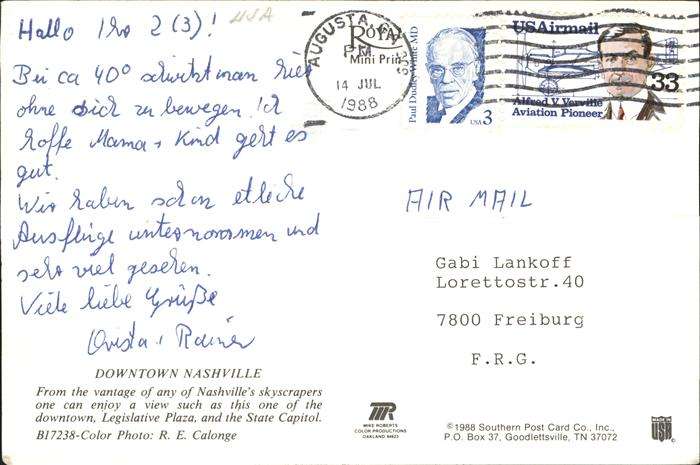 Hallo Ihr 2 (3)!
USA
Bei ca 40° schwitzt man hier
ohne sich zu bewegen. Ich
hoffe Mama + Kind geht es
gut.
Wir haben schon etliche
Ausflüge unternommen und
sehr viel gesehen.
Viele liebe Grüße
Christa + Rainer
DOWNTOWN NASHVILLE
From the vantage of any of Nashville's skyscrapers
one can enjoy a view such as this one of the
downtown, Legislative Plaza, and the State Capitol.
B17238-Color Photo: R. E. Calonge
AUGUSTA, GA
P.M.
14 JUL
1988
Mini Prin
Paul Dudley White MD
USA 3
USAirmail
33
Alfred V. Verville
Aviation Pioneer
AIR MAIL
Gabi Lankoff
Lorettostr.40
7800 Freiburg
F.R.G.
MR
MIKE ROBERTS
COLOR PRODUCTIONS
OAKLAND 94623
©1988 Southern Post Card Co., Inc.,
P.O. Box 37, Goodlettsville, TN 37072
USA